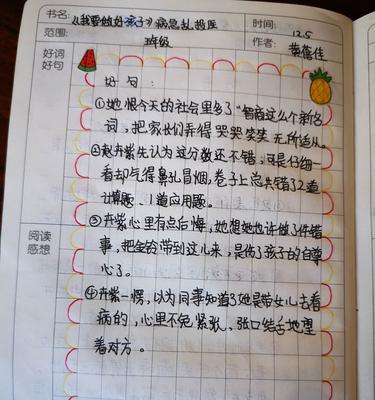 书名: 《我要做好孩子》病急乱投医
时间: 12.5
范围: 班级
作者: 黄蓓佳
好词
好句
好句:
①她恨今天的社会里多了"智商这么个新名
词,把家长们弄得哭哭笑笑无所适从。
②赵卉紫先认为这分数还不错,可是仔细一
看却气得鼻孔冒烟,卷子上总共错了2道
计算题、1道应用题。
③卉紫心里有点后悔,她想她也许做了件错
事,把金铃带到这儿来,是伤了孩子的自尊
心了。
④卉紫一愣,以为同事知道了她是带女儿去看
病的,心里不免紧张、张口结舌地望
着对方。
阅读
感想